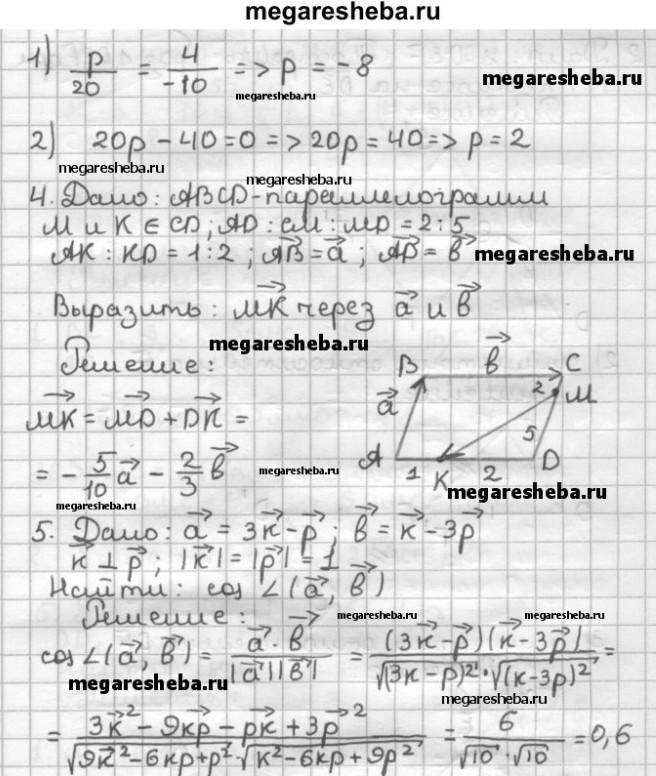 megaresheba.ru
1) p/20 = 4/-10 => p = -8
megaresheba.ru
megaresheba.ru
2) 20p - 40 = 0 => 20p = 40 => p = 2
megaresheba.ru
megaresheba.ru
4. Дано: ABCD - параллелограмм
M и K ∈ CD; AD: CM : MD = 2:5
AK : KD = 1:2; AB→ = a→; AD→ = b→
megaresheba.ru
Выразить: MK→ через a→ и b→
megaresheba.ru
Решение:
MK→ = MD→ + DK→ =
= - 5/10 a→ - 2/3 b→
megaresheba.ru
megaresheba.ru
B b→ C
2 M
a→
5
A 1 K 2 D
megaresheba.ru
5. Дано: a→ = 3k→ - p→; b→ = k→ - 3p→
k→ ⊥ p→; |k→| = |p→| = 1
Найти: cos ∠(a→, b→)
Решение:
megaresheba.ru
megaresheba.ru
cos ∠(a→, b→) = a→ · b→ / |a→||b→| = (3k→ - p→)(k→ - 3p→) / √(3k - p)² · √(k - 3p)² =
megaresheba.ru
megaresheba.ru
= 3k→² - 9kp→ - pk→ + 3p→² / √9k→² - 6kp + p² · √k² - 6kp + 9p² = 6 / √10 · √10 = 0,6